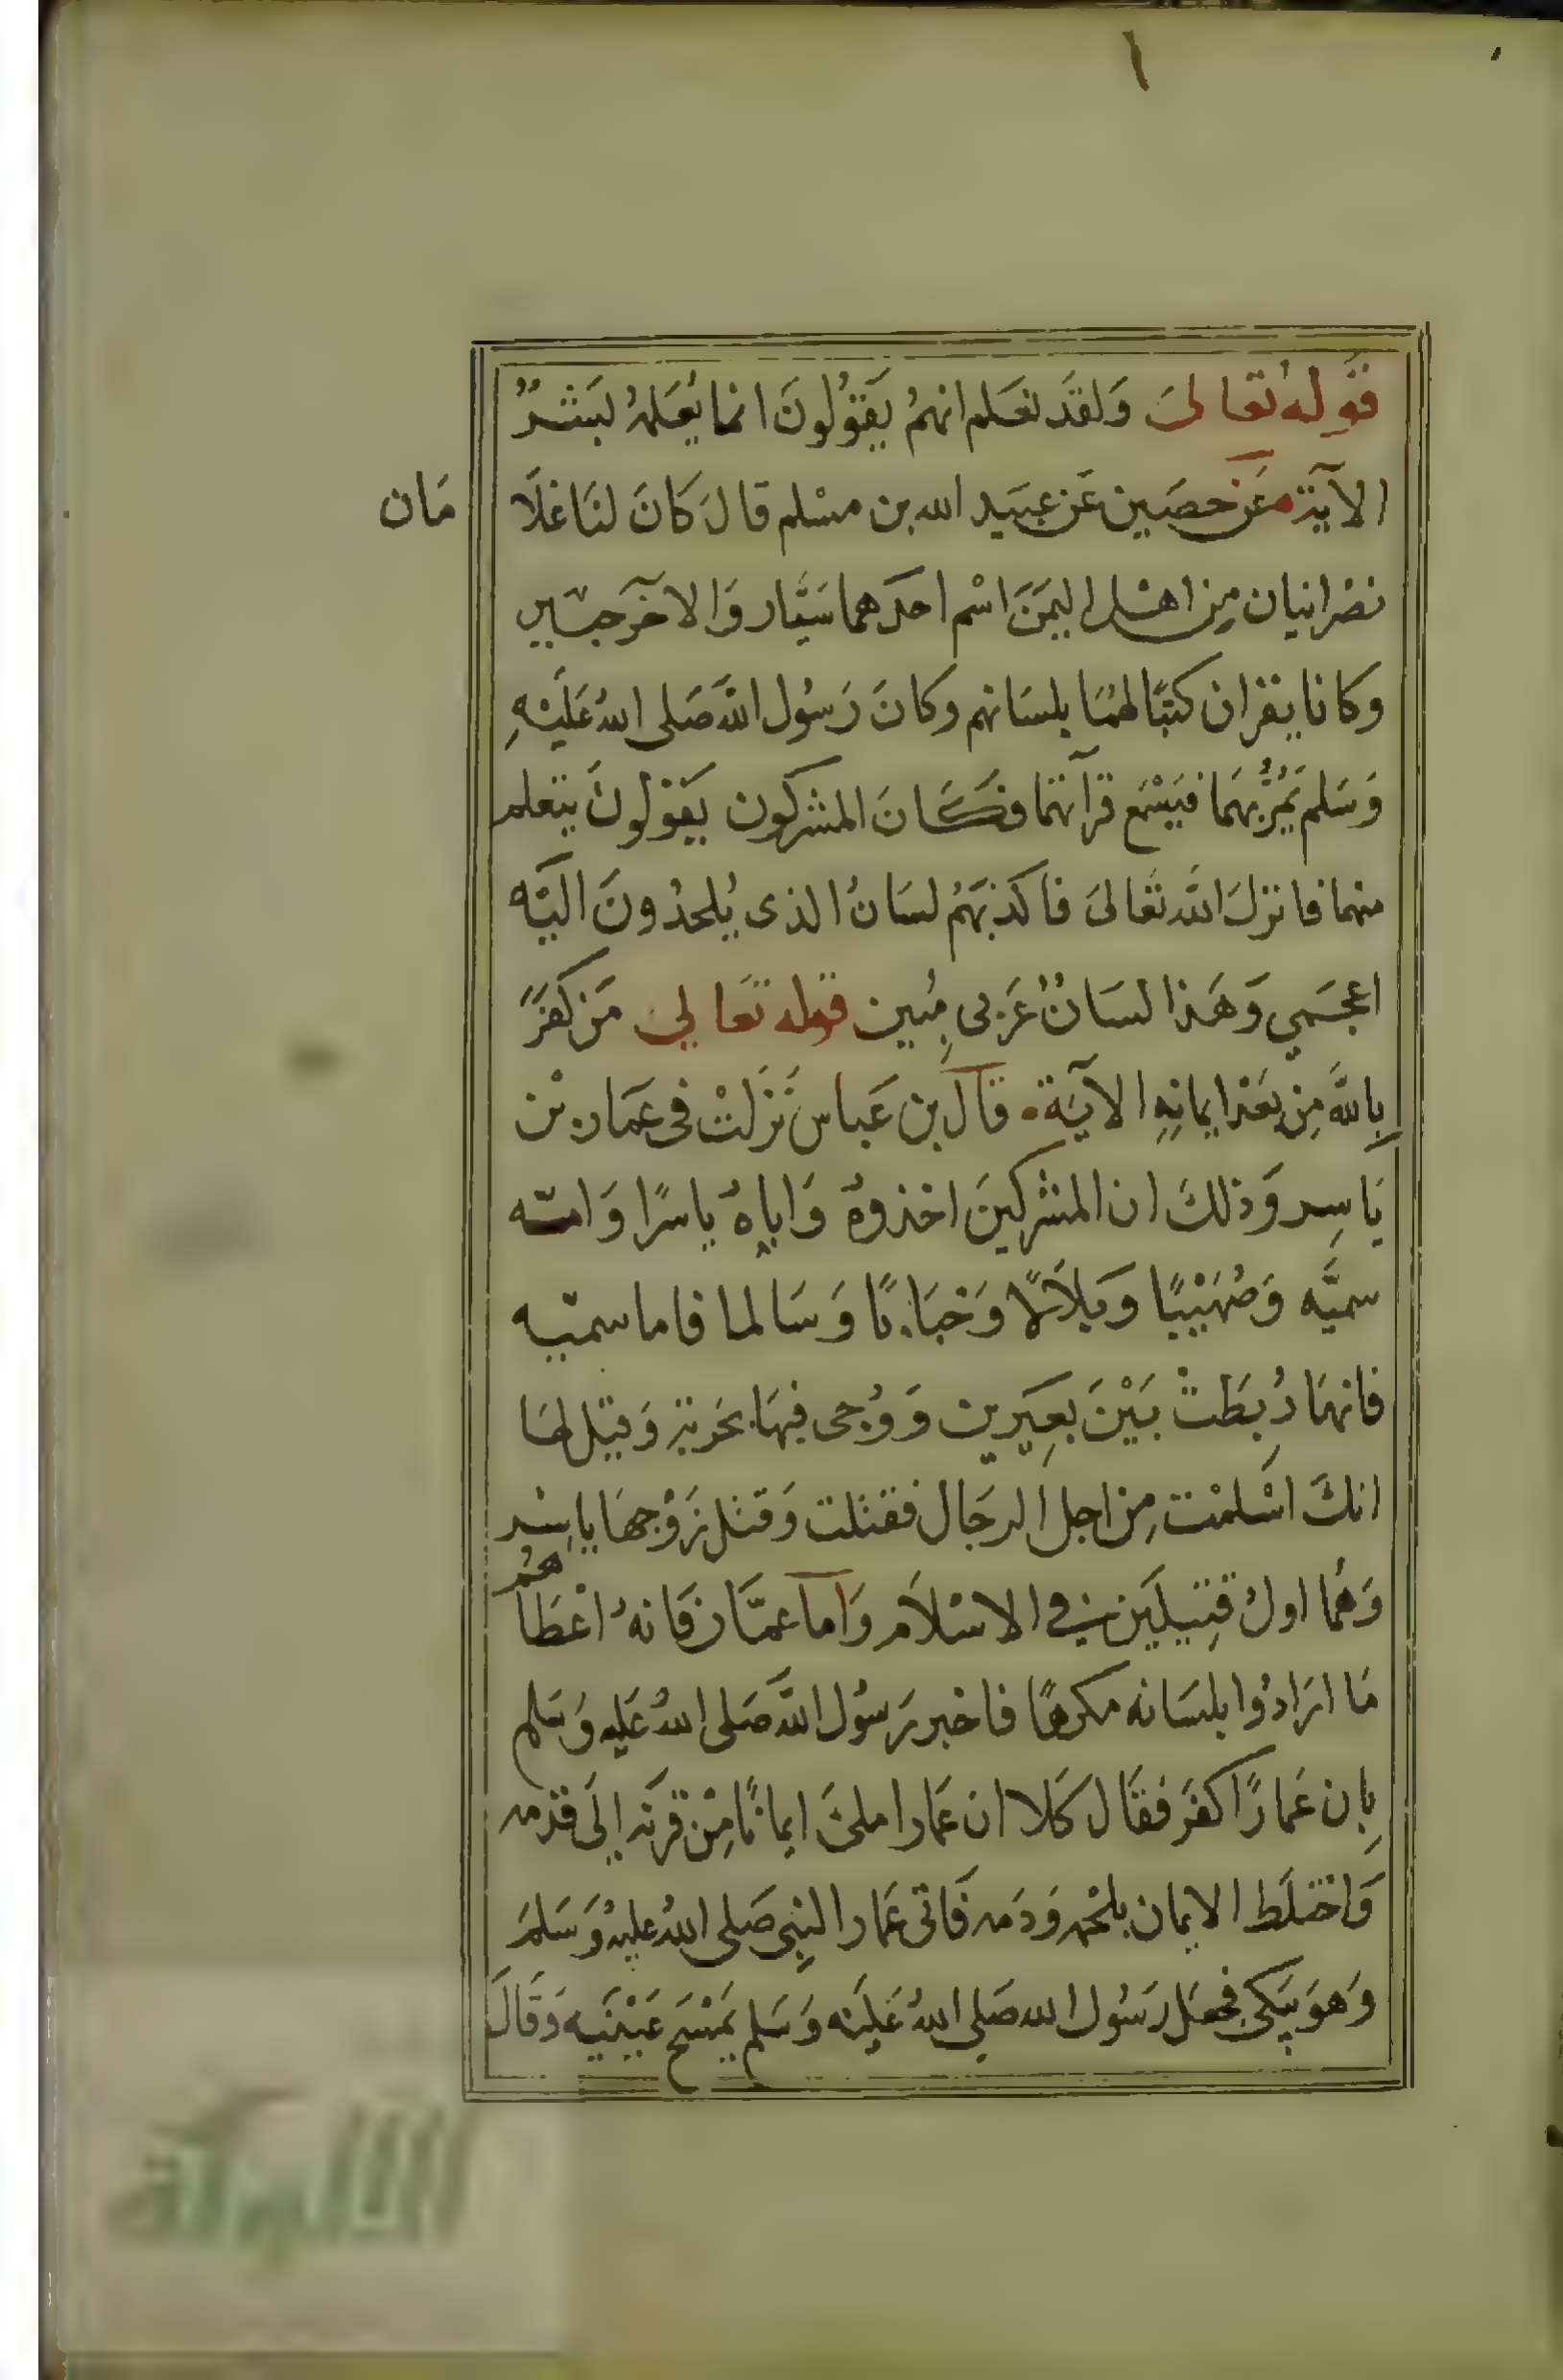 ١
قوله تعالى وَلقَد نعَلم انهُم يَقوُلونَ انما يُعَلمهُ لبَشرٌ
الآية عَن حصَين عَن عبَيد الله بن مسْلم قال كَانَ لنَا غلَا
مَان
نصْرانيان مِن اهْل اليمَنَ اسْم احدَهما سَيَّار وَالآخَر جبَير
وَكانا يقرَان كتبًا لهمَا بلسَانهم وكانَ رَسوُل الله صَلى اللهُ عَليْهِ
وَسَلم يَمُرُّ بهمَا فيَسْمَع قرآتهما فكَانَ المشركون يَقوْلونَ يتعلم
منهما فانزلَ الله تعَالىَ فاكذبَهَمُ لسَانُ الذى يُلحدُونَ اليَه
اعجَمي وَهَذا لسَانٌ عَرَبى مُبِين قوله تعَالي مَن كفَرَ
بِاللهَ مِن بعَد ايمانِهِ الآيَة قالَ بن عَباس نَزَلتْ فى عمَار بْن
يَاسِر وَذلكَ ان المشركينَ اخذوهُ وَاباهُ ياسرًا وَامّه
سميَّه وَصُهَيْبًا وَبلاَلاً وَخبَابًا وَسَالما فاما سميّه
فانهمَا رُبِطَتْ بَيْنَ بعِيَرين وَوُجى فِيهَا بحَربة وَقيل لهَا
انكَ اسْلمْت مِن اجل الرجَال فقتلت وَقتل زَوْجهَا ياسِر
وَهُما اولُ قتِيلَين في الاسْلاَم وَاما عمَّار فَانهُ اعْطَاهُم
مَا ارَادُوا بلسَانه مكرهًا فاخبر رَسوُل الله صَلى اللهُ عَليه وَسَلم
بِان عَمارًا كفَر فقَال كَلا ان عَمارا ملئَ ايمانًا مِن قرنَه إلىَ قدَمه
وَاختلَط الايمان بلحْمه وَدَمه فَاتى عَمار النبِى صَلى اللهُ عليهُ وَسَلمَ
وَهوَ يَبكى فجعَل رَسوُل الله صَلى اللهُ عَليَه وَسَلم يَمْسَح عَيْنيَه وَقَالَ
الألوكة